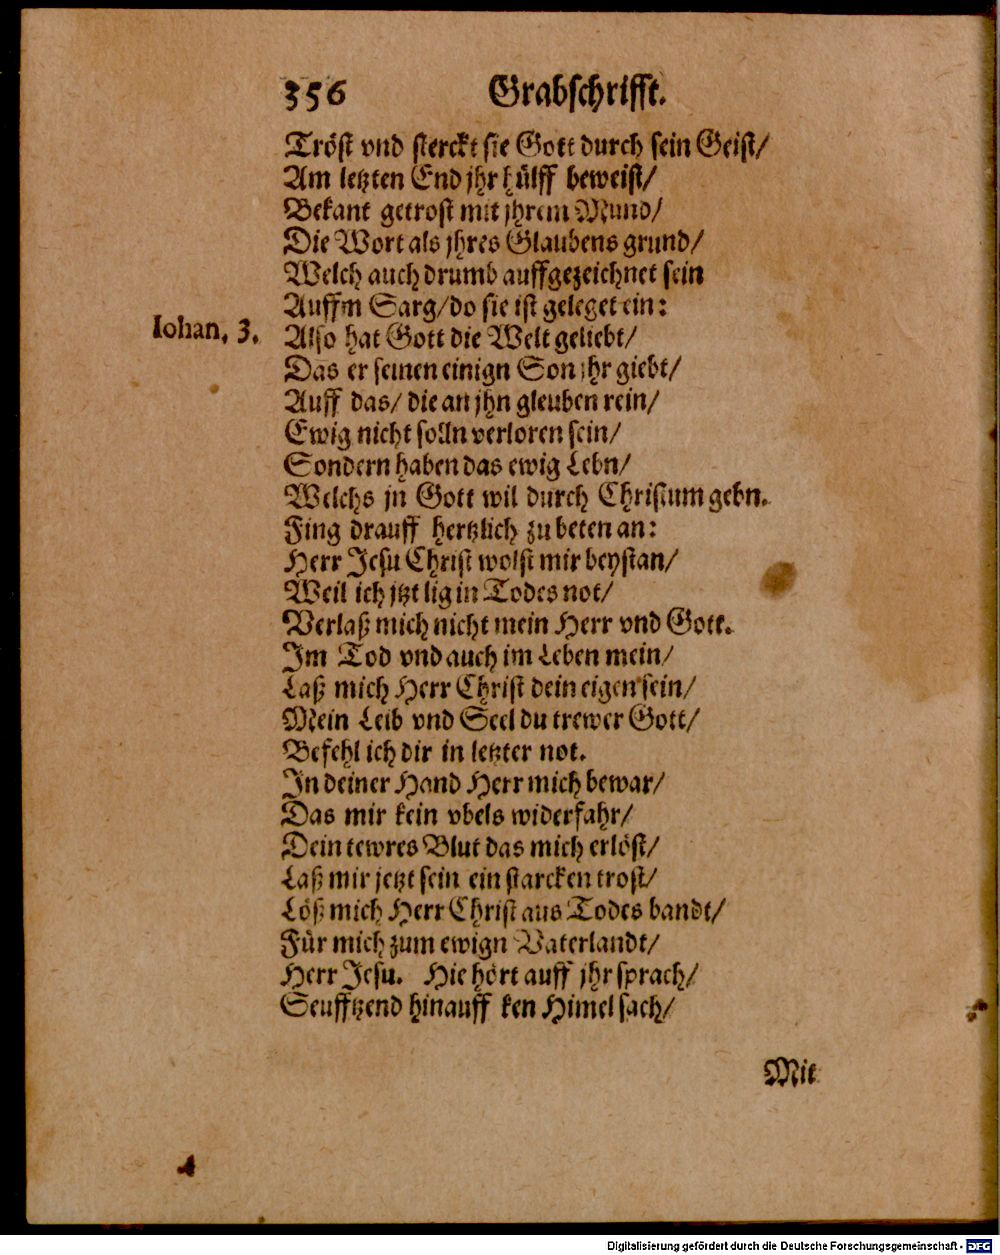 356 Grabschrifft.
Tröst vnd sterckt sie Gott durch sein Geist/
Am letzten End jhr hülff beweist/
Bekant getrost mit jhrem Mund/
Die Wort als jhres Glaubens grund/
Welch auch drumb auffgezeichnet sein
Auffm Sarg/ do sie ist geleget ein:
Iohan. 3. Also hat Gott die Welt geliebt/
Das er seinen einign Son jhr giebt/
Auff das/ die an jhn gleuben rein/
Ewig nicht solln verloren sein/
Sondern haben das ewig Lebn/
Welchs jn Gott wil durch Christum gebn.
Fing drauff hertzlich zu beten an:
Herr Jesu Christ wolst mir beystan/
Weil ich jtzt lig in Todes not/
Verlaß mich nicht mein Herr vnd Gott.
Im Tod vnd auch im Leben mein/
Laß mich Herr Christ dein eigen sein/
Mein Leib vnd Seel du trewer Gott/
Befehl ich dir in letzter not.
In deiner Hand Herr mich bewar/
Das mir kein vbels widerfahr/
Dein tewres Blut das mich erlöst/
Laß mir jetzt sein ein starcken trost/
Löß mich Herr Christ aus Todes bandt/
Für mich zum ewign Vaterlandt/
Herr Jesu. Hie hört auff jhr sprach/
Seufftzend hinauff ken Himel sach/
Mit
Digitalisierung gefördert durch die Deutsche Forschungsgemeinschaft - DFG